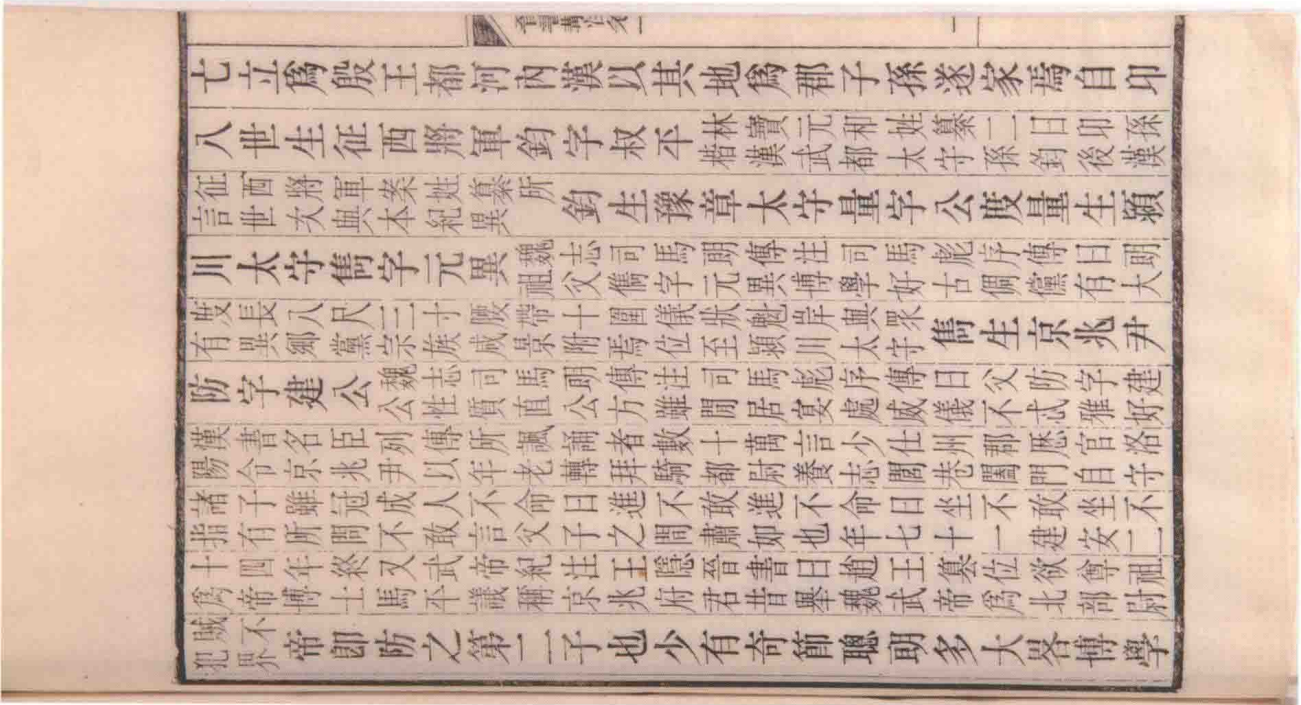 亡立爲殷王都河內漢以其地爲郡子孫遂家焉自卬
八世生征西將軍鈞字叔平
林寶元和姓纂二曰卬孫
楷漢武都太守孫鈞後漢
征西將軍案姓纂所
言世次與本紀異
鈞生豫章太守量字公度量生潁
川太守雋字元異
魏志司馬朗傳注司馬彪序傳曰朗
祖父雋字元異博學好古倜儻有大
度長八尺三寸腰帶十圍儀狀魁岸與眾
有異鄉黨宗族咸景附焉位至潁川太守
雋生京兆尹
防字建公
魏志司馬朗傳注司馬彪序傳曰父防字建
公性質直公方雖閒居宴處威儀不忒雅好
漢書名臣列傳所諷誦者數十萬言少仕州郡歷官洛
陽令京兆尹以年老轉拜騎都尉養志閭巷闔門自守
諸子雖冠成人不命曰進不敢進不命曰坐不敢坐不
指有所問不敢言父子之間肅如也年七十一建安二
十四年終又武帝紀注王隱晉書曰趙王篡位欲尊祖
爲帝博士馬平議稱京兆府君昔舉魏武帝爲北部尉
賊不
犯界
帝卽防之第二子也少有奇節聰朗多大畧博學